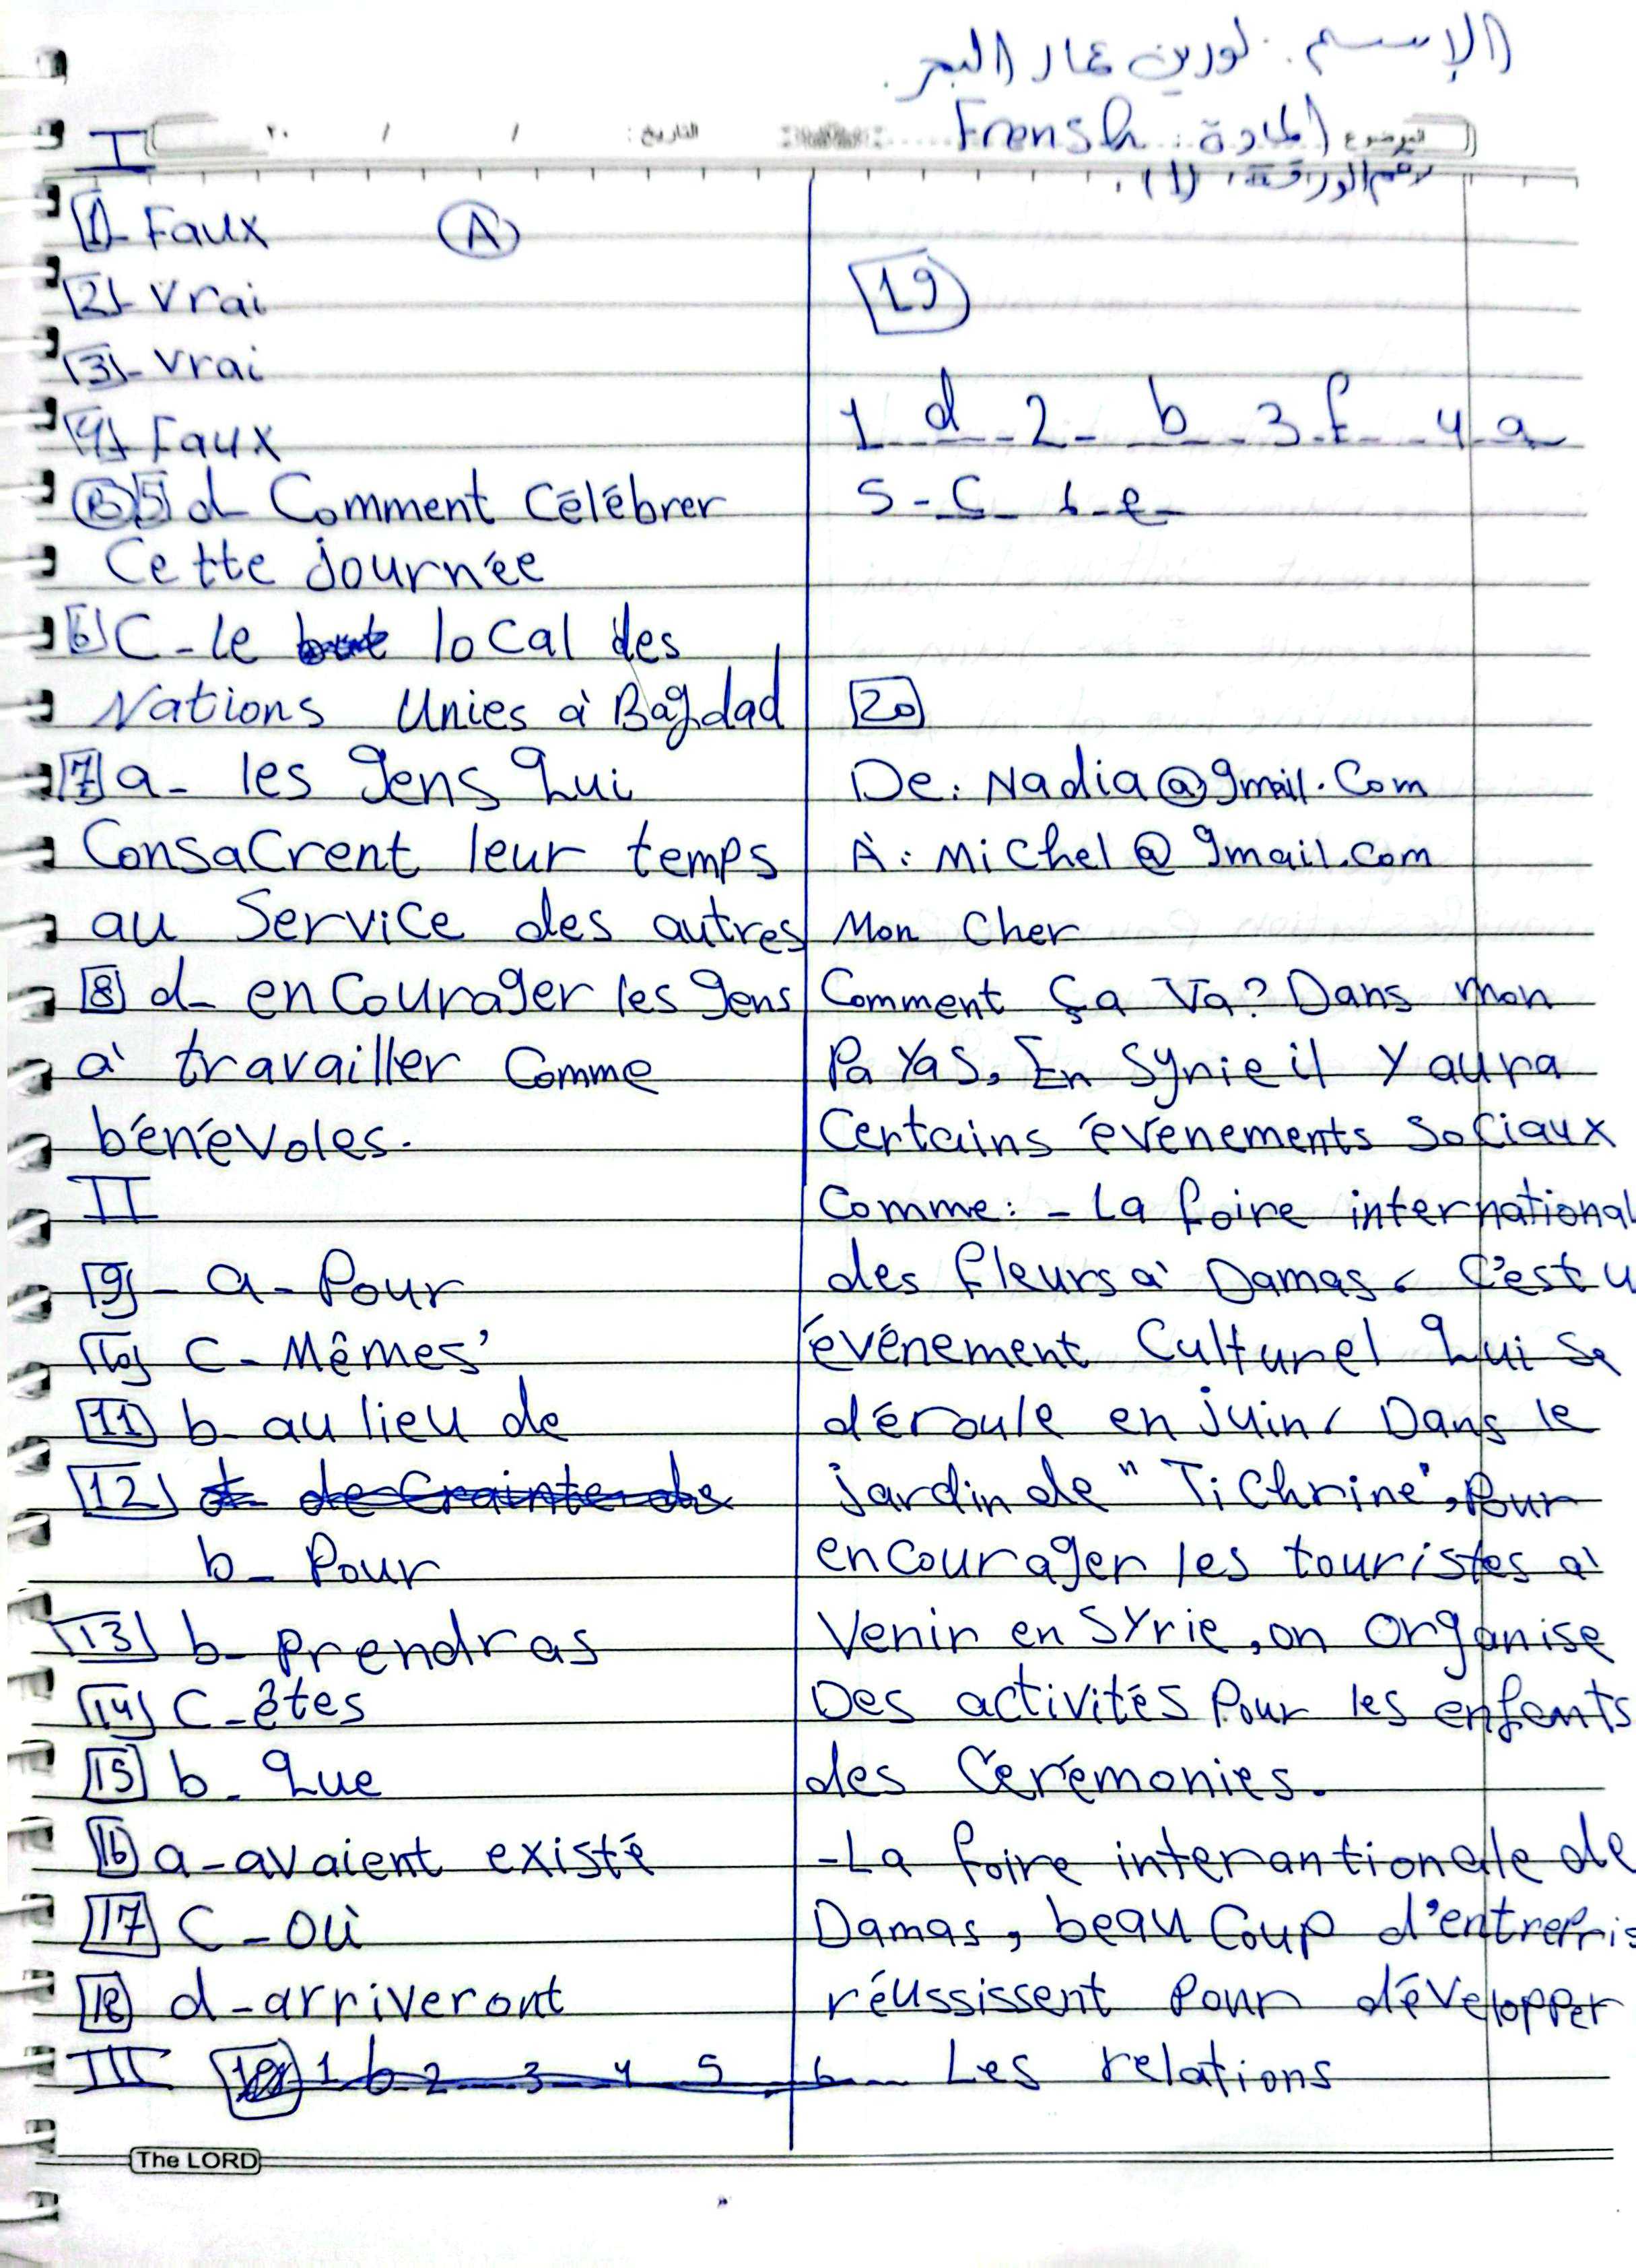 الإسم: لورين عمار البحر.
الموضوع المادة: Frensh التاريخ: / / ٢٠
رقم الورقة: (1).
I
1- Faux A
2- Vrai
3- Vrai
4- Faux
B 5 d- Comment Célébrer
Cette journée
6 C- le local des
Nations Unies à Bagdad
7 a- les gens qui
Consacrent leur temps
au Service des autres
8 d- encourager les gens
à travailler Comme
bénévoles.
II
9- a- Pour
10 C- Mêmes
11 b- au lieu de
12 d- de Crainte de
b- Pour
13 b- prendras
14 C- êtes
15 b- que
16 a- avaient existé
17 C- Où
18 d- arriveront
III 19 1 b 2 3 4 5 6
19
1 d - 2 - b - 3 f - 4 a
5 - C - 6 - e -
20
De: Nadia@gmail.Com
À: Michel@gmail.com
Mon Cher
Comment ça Va? Dans mon
Payas, En Synie il y aura
Certains événements Sociaux
Comme: - La foire international
des fleurs à Damas, C'est u
événement Culturel qui se
déroule en juin, Dans le
jardin de "Tichrine", Pour
encourager les touristes à
Venir en Syrie, on Organise
Des activités Pour les enfents
des Cérémonies.
- La foire interantionale de
Damas, beaucoup d'entrepris
réussissent Pour développer
Les relations
The LORD